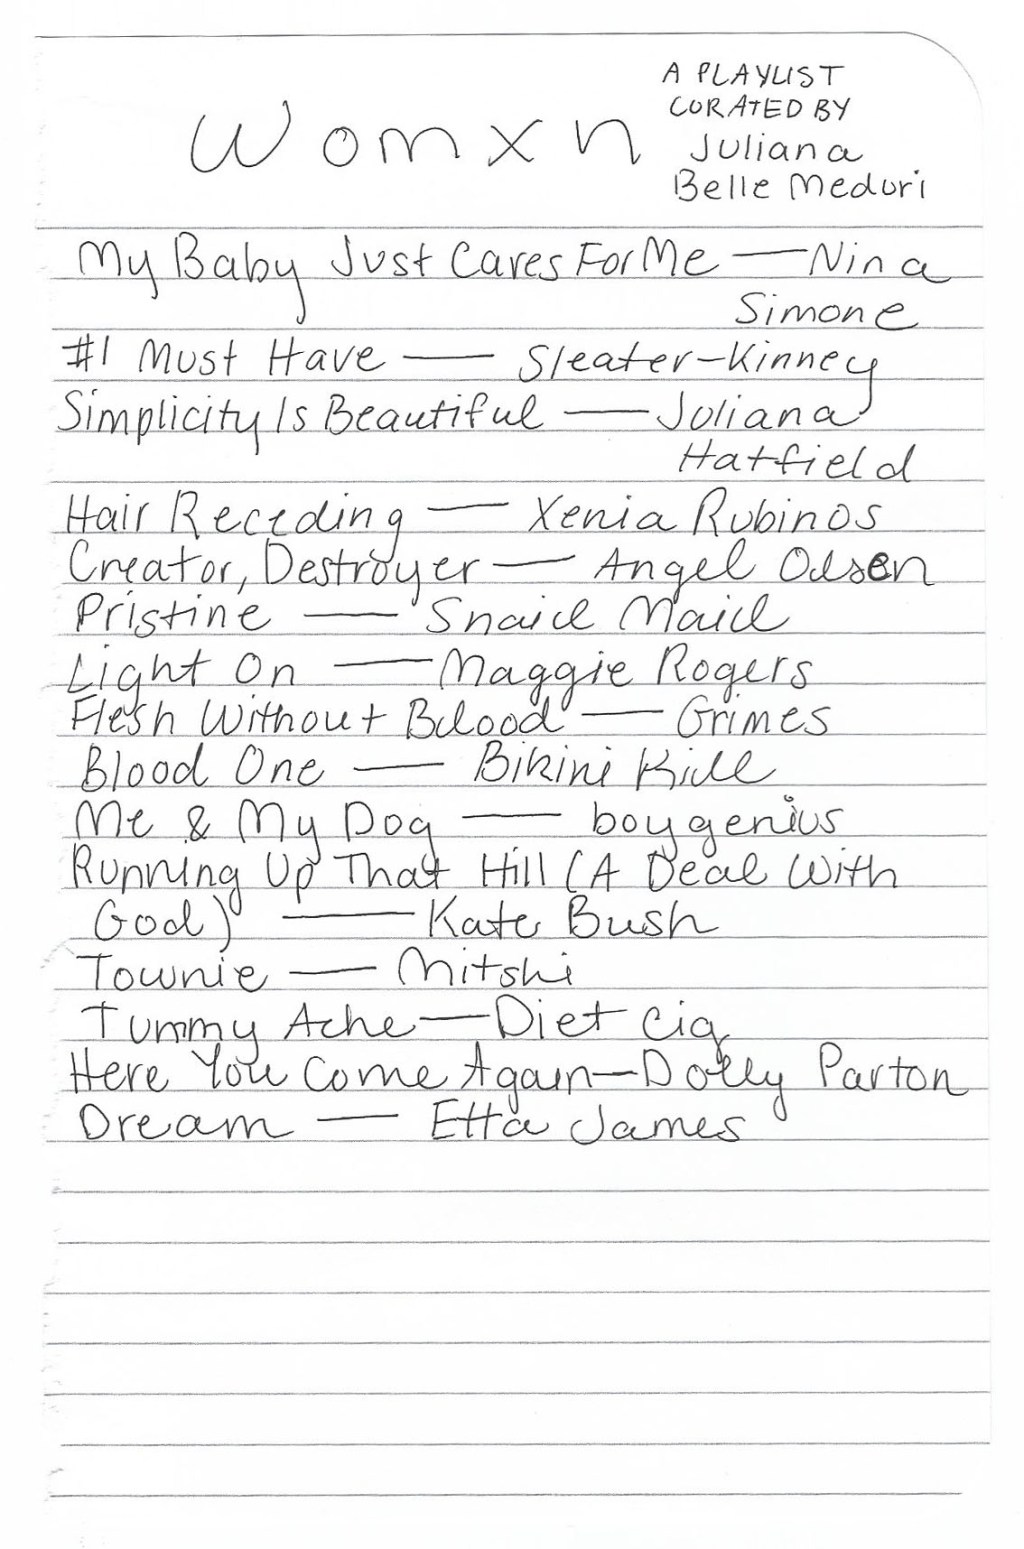 Womxn
A PLAYLIST
CURATED BY
Juliana
Belle Meduri
My Baby Just Cares For Me — Nina
Simone
#1 Must Have — Sleater-Kinney
Simplicity Is Beautiful — Juliana
Hatfield
Hair Receding — Xenia Rubinos
Creator, Destroyer — Angel Olsen
Pristine — Snail Mail
Light On — Maggie Rogers
Flesh Without Blood — Grimes
Blood One — Bikini Kill
Me & My Dog — boygenius
Running Up That Hill (A Deal With
God) — Kate Bush
Townie — Mitski
Tummy Ache — Diet Cig
Here You Come Again — Dolly Parton
Dream — Etta James